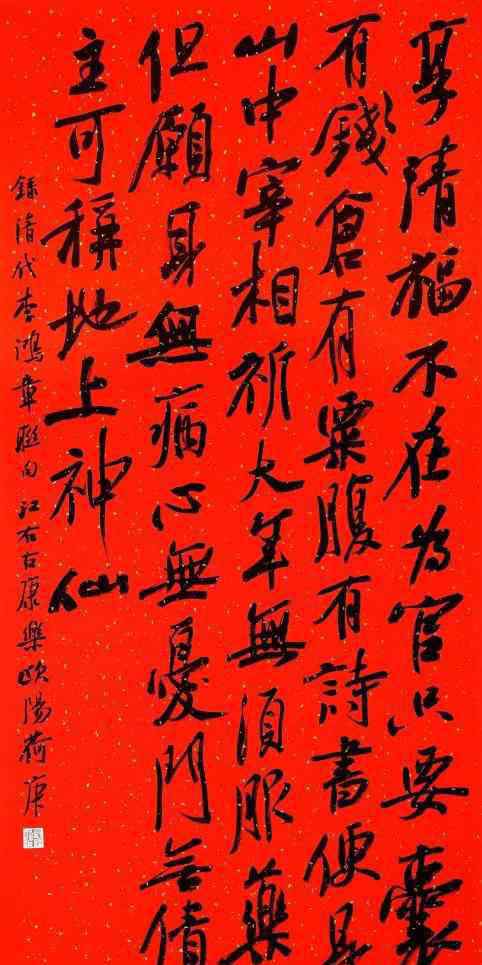 享清福不在為官只要囊
有錢倉有粟腹有詩書便是
山中宰相祈大年無須服藥
但願身無病心無憂門无債
主可稱地上神仙
錄清代李鴻章聯句 江右古康樂歐陽荷庚